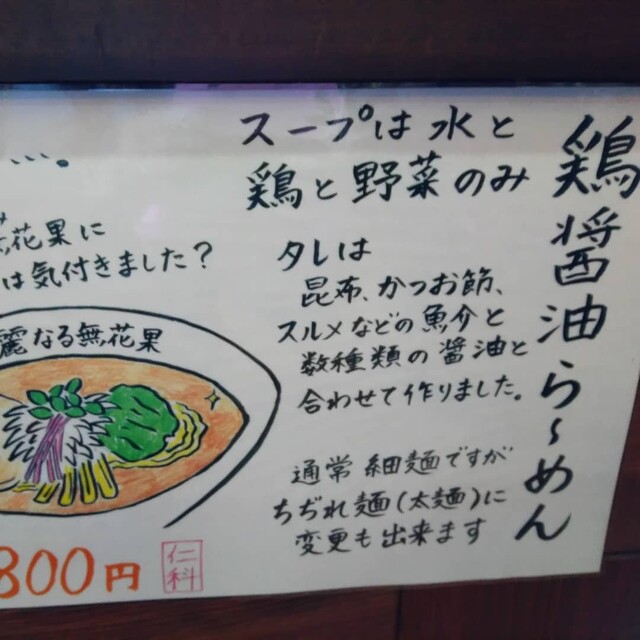 鶏醤油ら～めん
スープは水と
鶏と野菜のみ
タレは
昆布、かつお節、
スルメなどの魚介と
数種類の醤油と
合わせて作りました。
通常細麺ですが
ちぢれ麺(太麺)に
変更も出来ます
無花果に
は気付きました?
麗なる無花果
800円
仁科